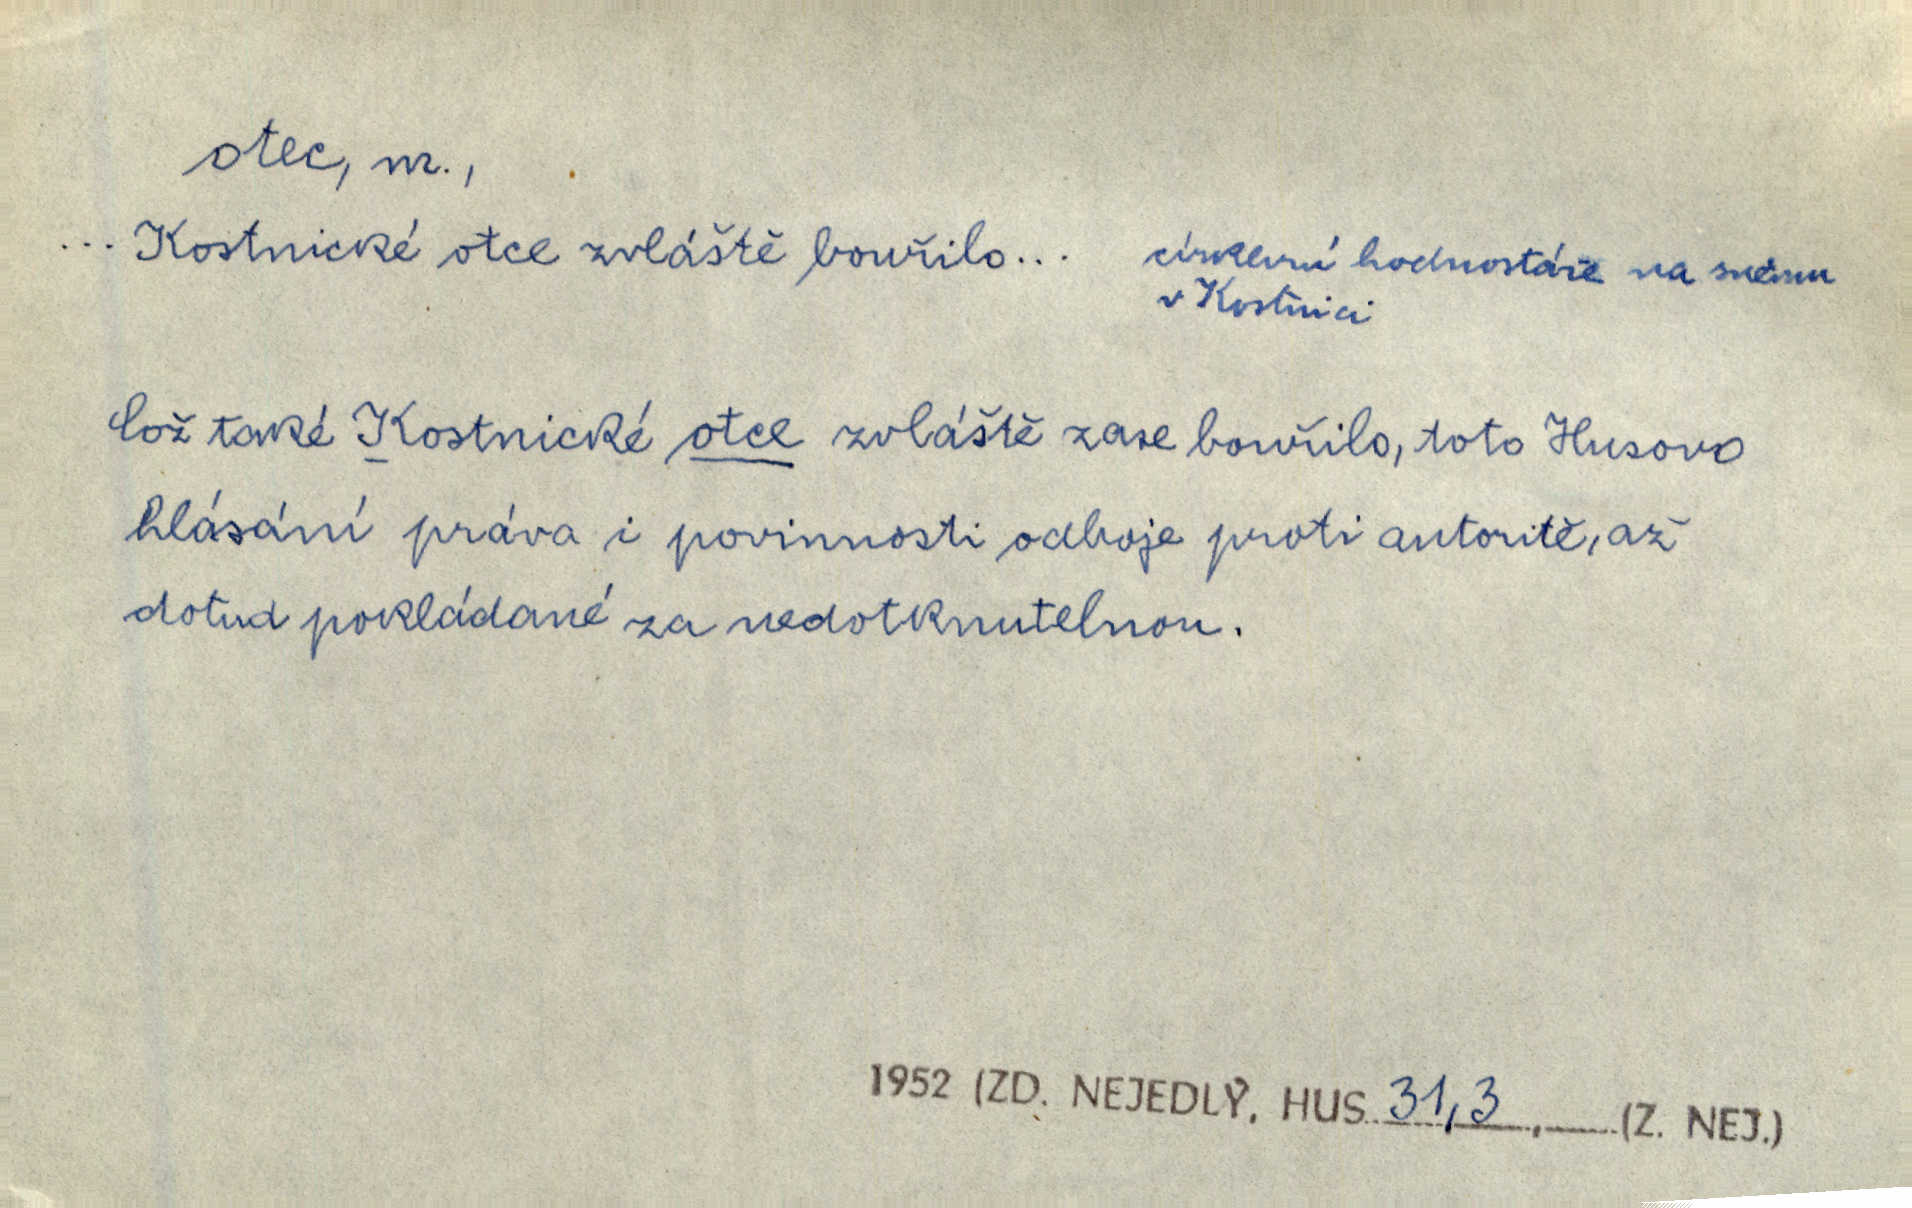 otec, m.,
... Kostnické otce zvláště bouřilo... církevní hodnostáře na sněmu
v Kostnici
Což také Kostnické otce zvláště zase bouřilo, toto Husovo
hlásání práva i povinnosti odboje proti autoritě, až
dotud pokládané za nedotknutelnou.
1952 (ZD. NEJEDLÝ, HUS 31,3 , (Z. NEJ.)